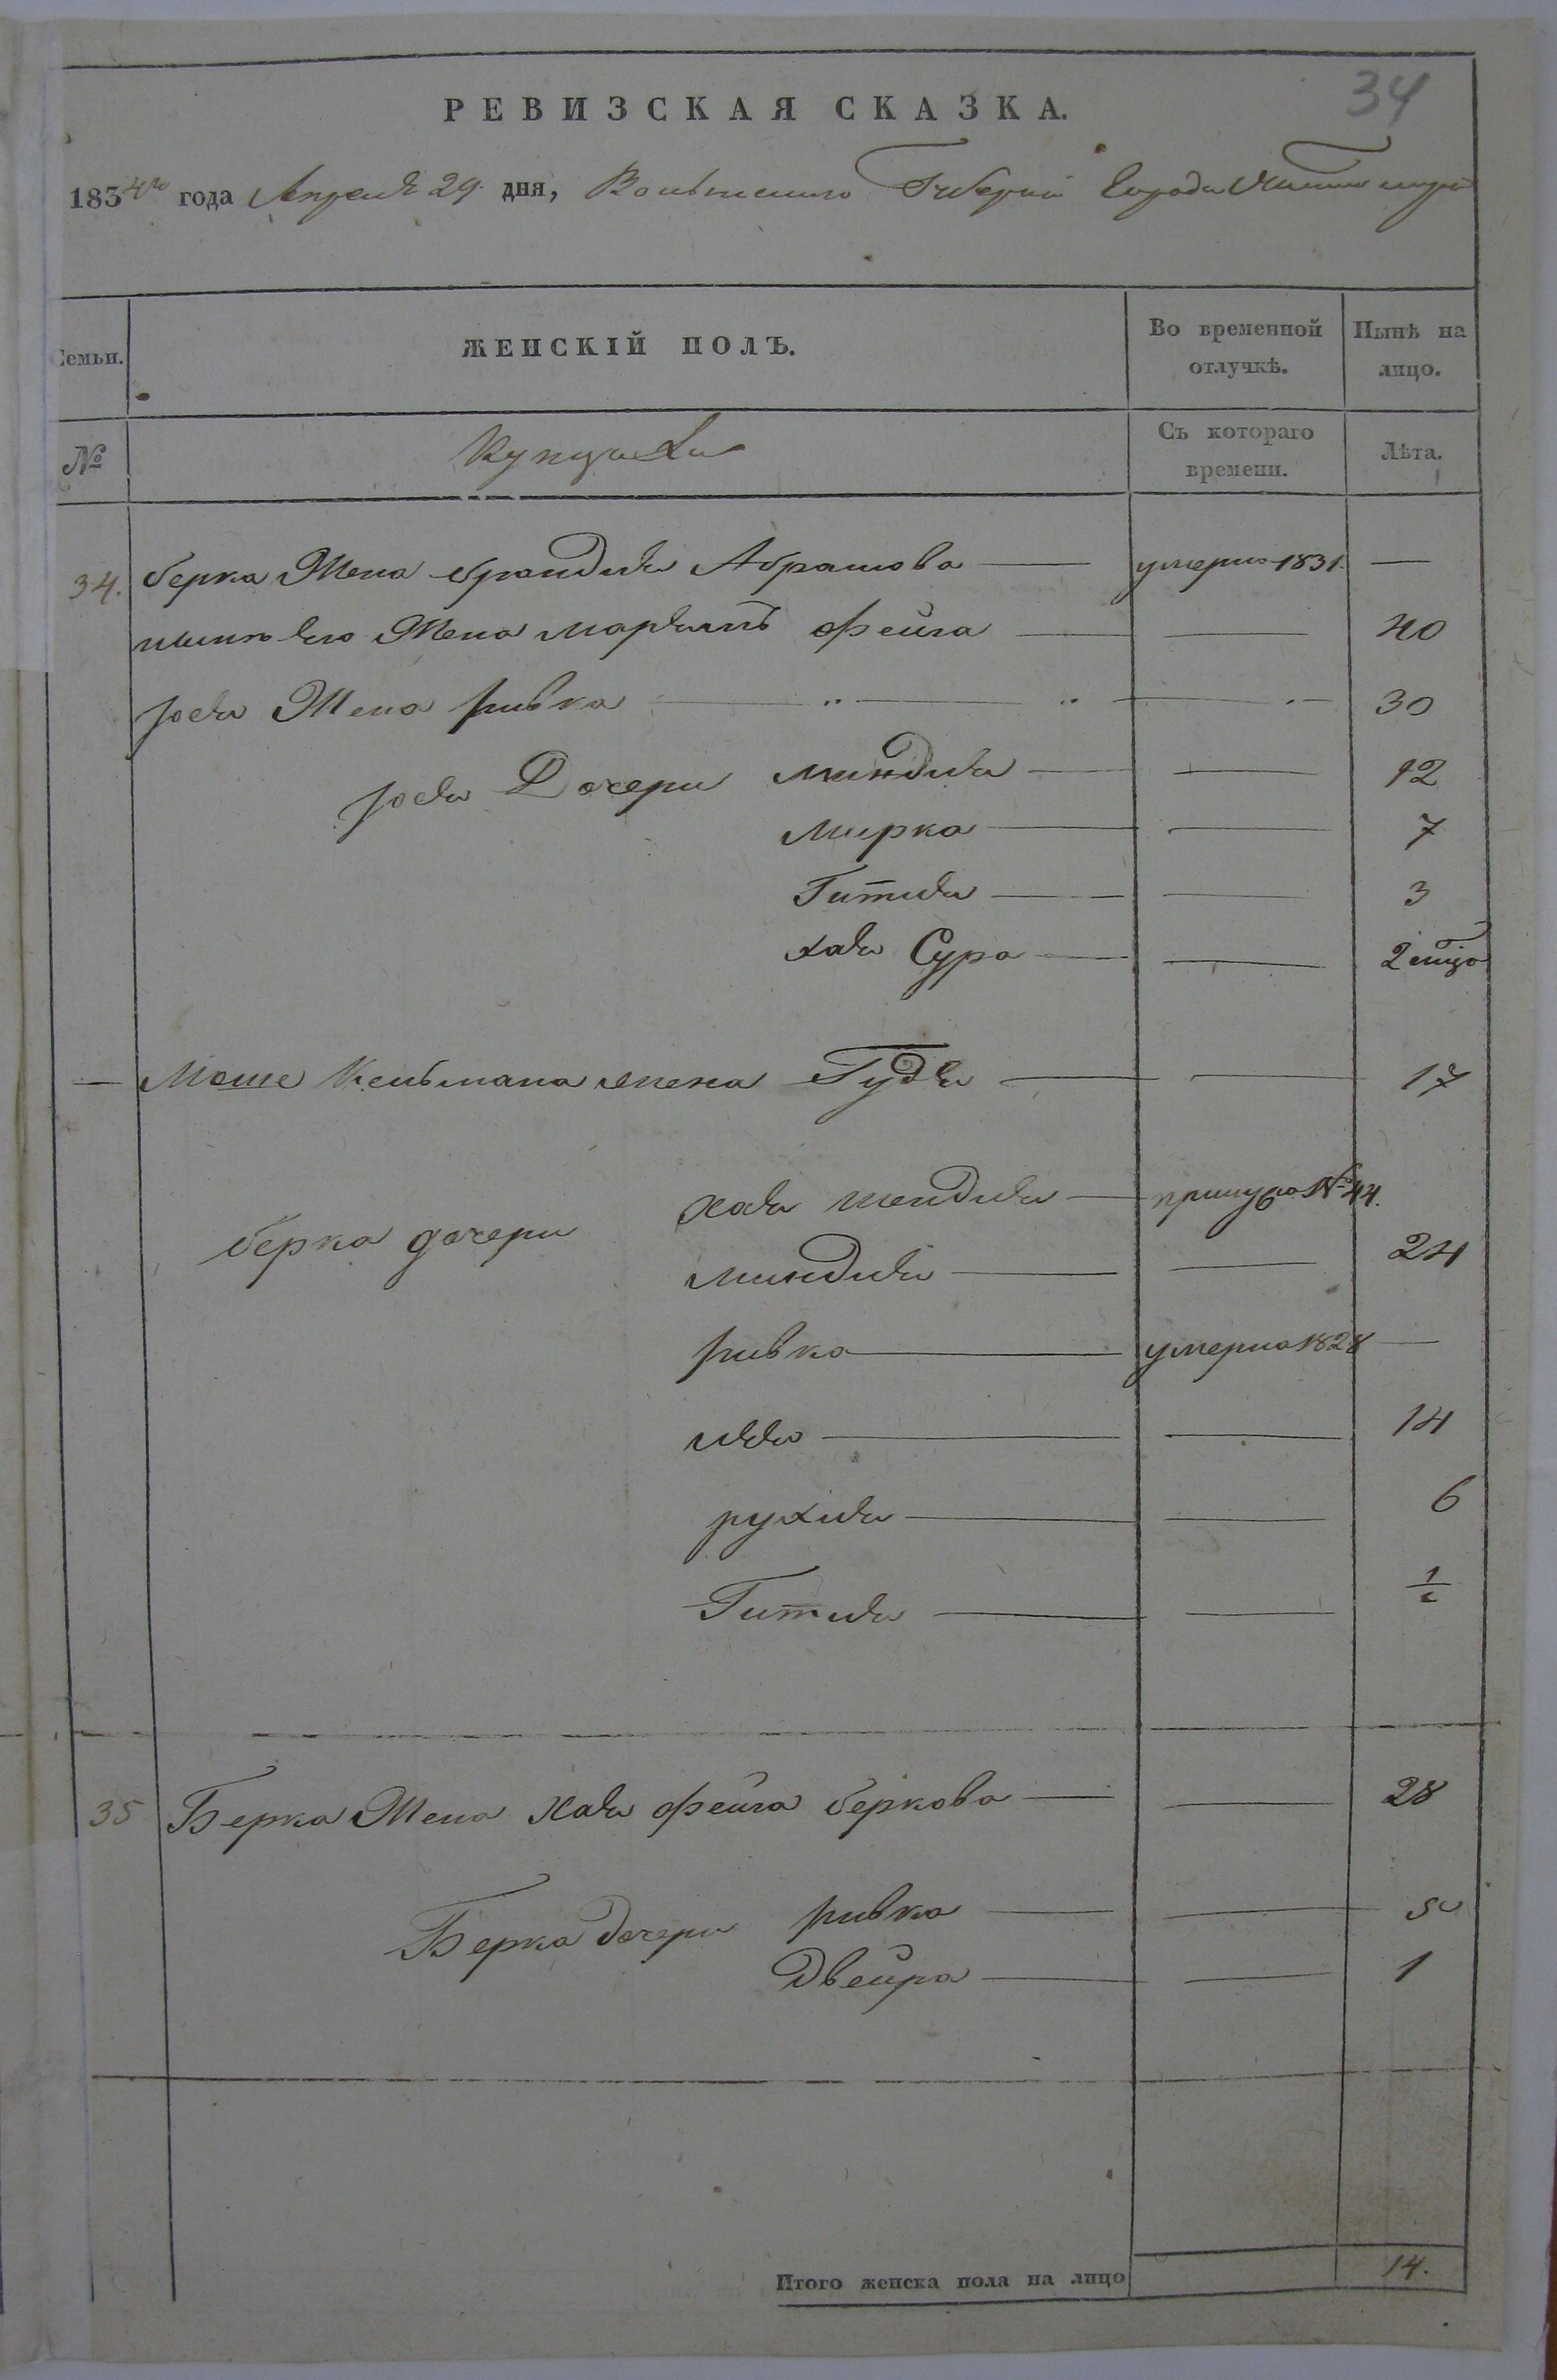 34
РЕВИЗСКАЯ СКАЗКА.
1834го года Апреля 29 дня, Волынской Губернии Города
Семьи. ЖЕНСКІЙ ПОЛЪ. Во временной отлучкѣ. Нынѣ на лицо.
№ Съ котораго времени. Лѣта.
34. берка Жена брандля Абрамова — умерла 1831. —
его Жена Марьямъ Фейга — — 40
Жена ривка — — 30
Дочери миндля — — 12
мирка — — 7
Гитля — — 3
хая Сура — — 2
— Моше Кельмана жена Гудя — — 17
берка дочери хая шендля — №44.
миндля — — 24
ривка — умерла 1828 —
— — 14
рухля — — 6
Гитля — — 1/2
35 Берка Жена хая фейга беркова — — 28
Берка дочери ривка — — 5
двейра — — 1
Итого женска пола на лицо 14.